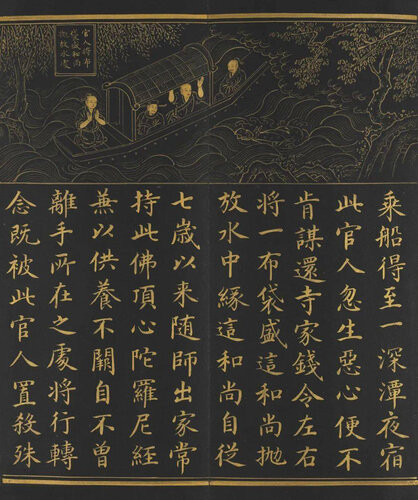 官人將布
袋盛和尚
拋放水處
乘船得至一深潭夜宿
此官人忽生惡心便不
肯謀還寺家錢令左右
將一布袋盛這和尚拋
放水中緣這和尚自從
七歲以来随師出家常
持此佛頂心陀羅尼經
兼以供養不闕自不曾
離手所在之處將行轉
念既被此官人置殺殊